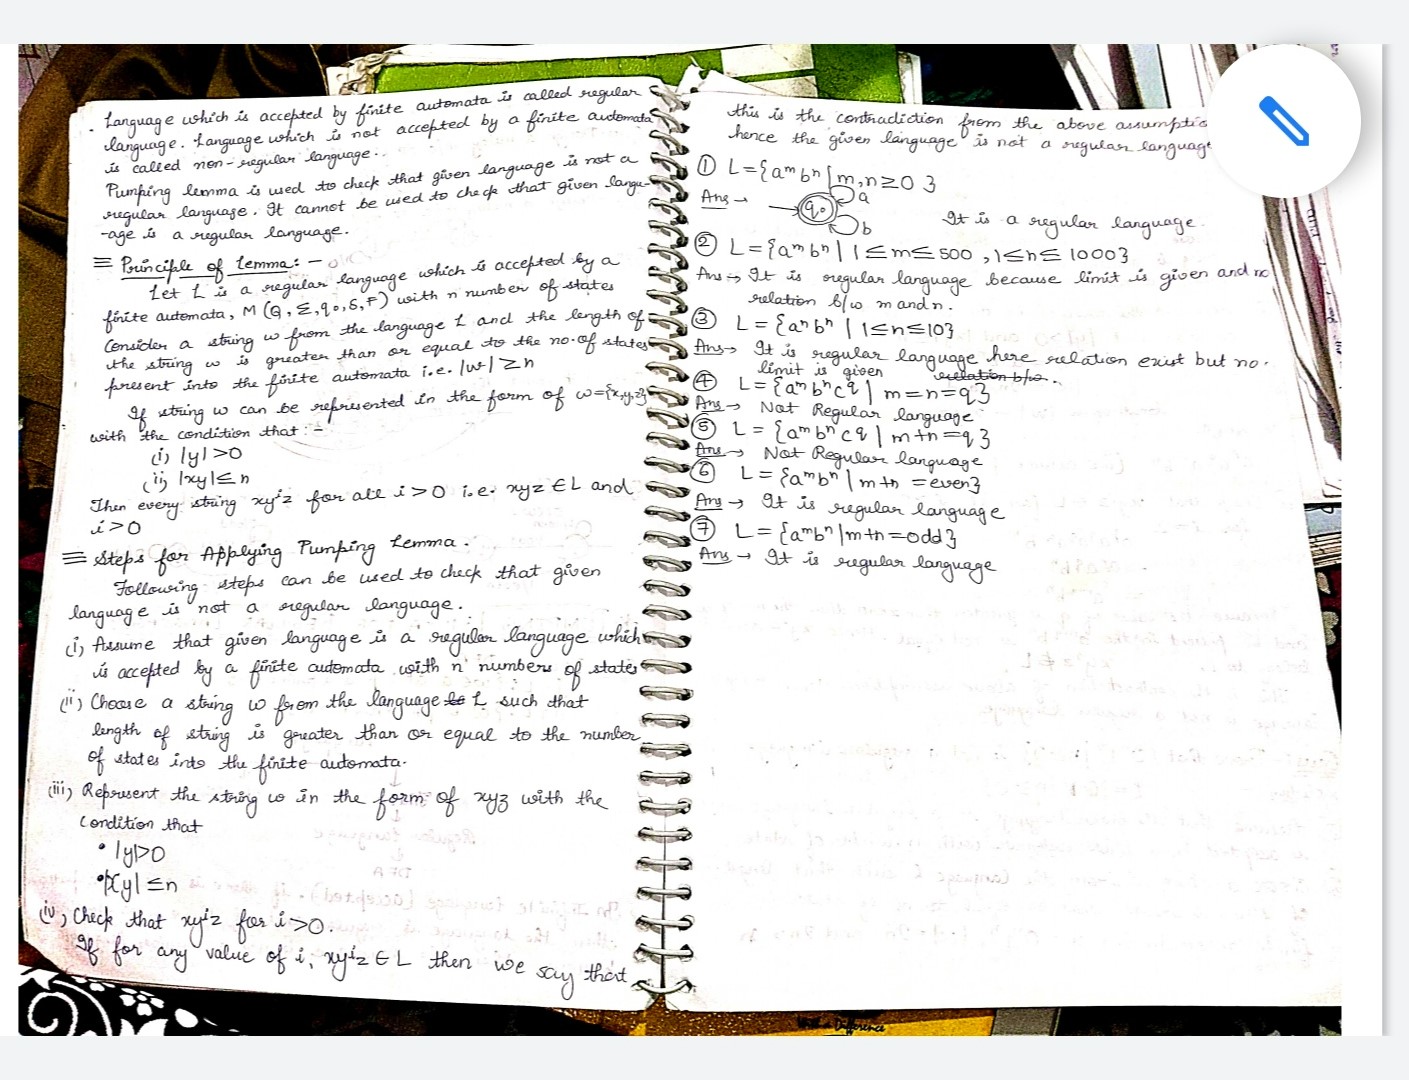 Language which is accepted by finite automata is called regular
language. Language which is not accepted by a finite automata
is called non-regular language.
Pumping lemma is used to check that given language is not a
regular language. It cannot be used to check that given langu-
-age is a regular language.
≡ Principle of Lemma: -
Let L is a regular language which is accepted by a
finite automata, M (Q, Σ, q₀, δ, F) with n number of states
Consider a string w from the language L and the length of
the string w is greater than or equal to the no. of states
present into the finite automata i.e. |w| ≥ n
If string w can be represented in the form of w={x,y,z}
with the condition that : -
(i) |y| >0
(ii) |xy| ≤ n
Then every string xyⁱz for all i > 0 i.e. xyz ∈ L and
i > 0
≡ Steps for Applying Pumping Lemma.
Following steps can be used to check that given
language is not a regular language.
(i) Assume that given language is a regular language which
is accepted by a finite automata with n numbers of states
(ii) Choose a string w from the language L such that
length of string is greater than or equal to the number
of states into the finite automata.
(iii) Represent the string w in the form of xyz with the
condition that
• |y|>0
• |xy| ≤n
(iv) Check that xyⁱz for i >0.
If for any value of i, xyⁱz ∈ L then we say that
this is the contradiction from the above assumptio
hence the given language is not a regular language
① L={aᵐbⁿ | m,n≥0 }
Ans → q₀ a
b It is a regular language.
② L={aᵐbⁿ | 1≤m≤500, 1≤n≤1000}
Ans → It is regular language because limit is given and no
relation b/w m and n.
③ L = {aⁿbⁿ | 1≤n≤10}
Ans → It is regular language here relation exist but no.
limit is given relation b/w.
④ L = {aᵐbⁿc^q | m=n=q}
Ans → Not Regular language
⑤ L = {aᵐbⁿc^q | m+n=q}
Ans → Not Regular language
⑥ L = {aᵐbⁿ | m+n = even}
Ans → It is regular language
⑦ L = {aᵐbⁿ | m+n=odd}
Ans → It is regular language
Difference